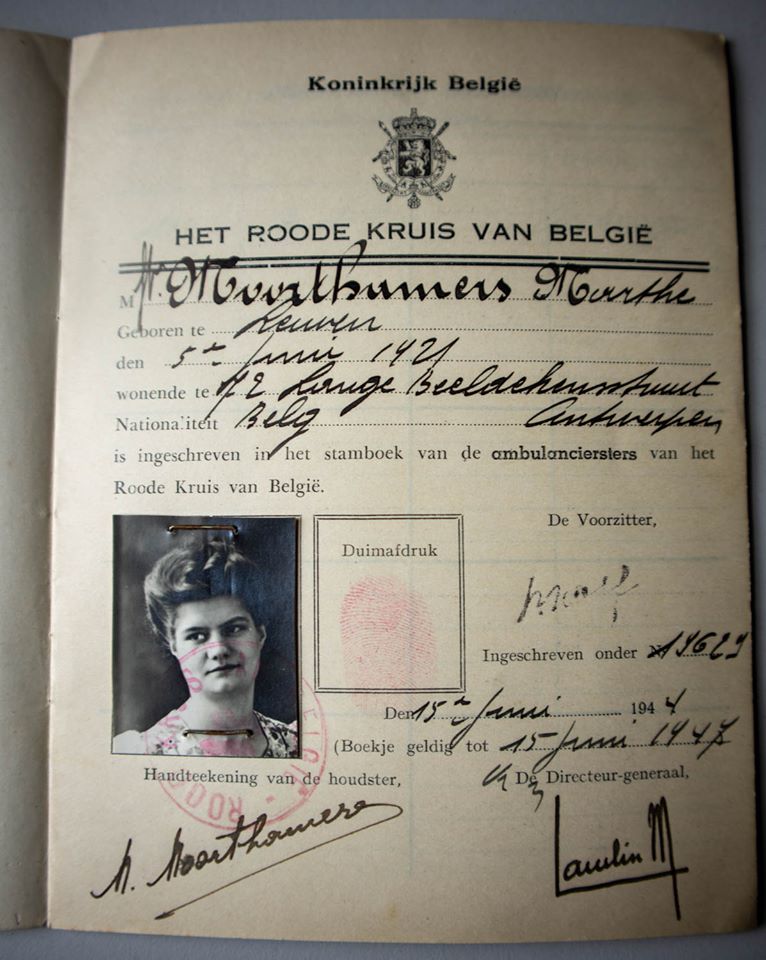 Koninkrijk België
HET ROODE KRUIS VAN BELGIË
M Moorthamers Marthe
Geboren te Leuven
den 5de Juni 1921
wonende te 72 Lange Beeldekensstraat
Nationaliteit Belg Antwerpen
is ingeschreven in het stamboek van de ambulanciersters van het
Roode Kruis van België.
De Voorzitter,
Duimafdruk
Ingeschreven onder 19629
Den 15de Juni 1944
(Boekje geldig tot 15 Juni 1947
Handteekening van de houdster,
De Directeur-generaal,
M. Moorthamers